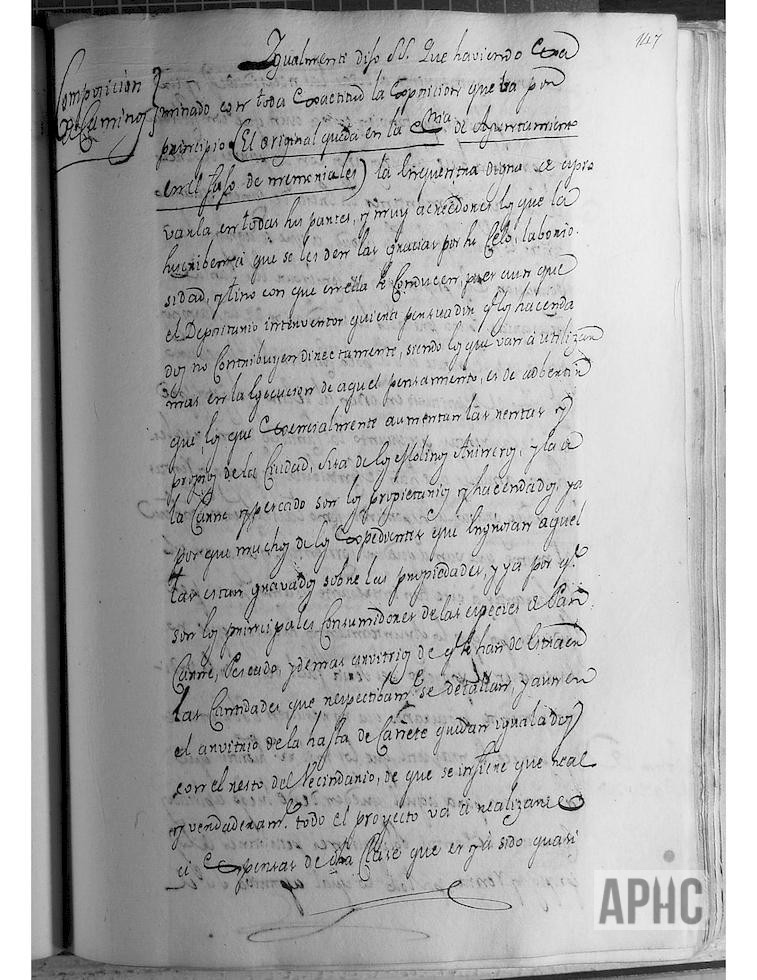 147
Composicion
de Caminos
Igualmente dijo SS. Que haviendo Exa
minado con toda Exactitud la Exposicion que va por
principio (El original queda en la Essnia de Ayuntamiento
en el fajo de memoriales) la Encuentra digna de apro
varla en todas sus partes, y muy acreedores los que la
suscriben a que se les den las gracias por su Celo, laborio
sidad, y tino con que en ella se Conducen, pues aun que
el Depositario interventor quiera persuadir q.e los hacenda
dos no Contribuyen directamente, siendo los que van a utilizar
mas en la Egecucion de aquel pensamiento, es de advertir
que los que Esencialmente aumentan las rentas y
propios de la Ciudad, sita de los Molinos Arineros, y la de
la Carne y pescado son los propietarios y hacendados, ya
por que muchos de los Expedientes que aquel
las estan gravados sobre sus propiedades, y ya por q.e
son los principales Consumidores de las especies de Pan,
Carne, Pescado, y demas arvitrios de q.e se han de Estraer
las Cantidades que respectibam.te se detallan, y aun en
el arvitrio de la hasta de Cañete quedan ygualados
con el resto del Vecindario, de que se infiere que real
y verdaderam.te todo el proyecto va a realizarse
a Expensas de esta Clase que es y à sido quasi
APHC